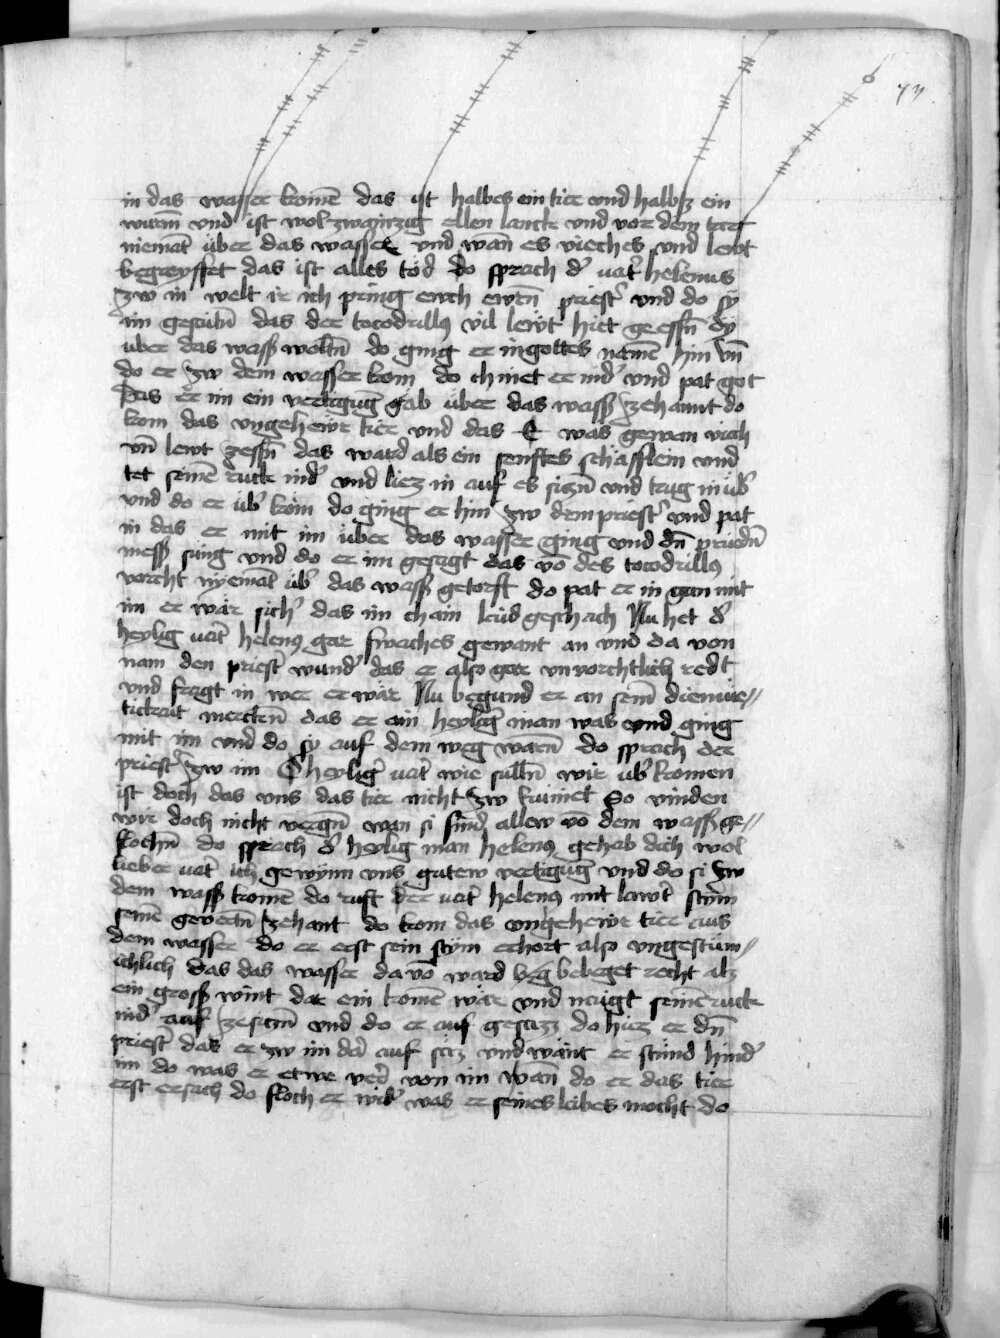 in das wasser komē das ist halbes ein tier vnd halbß ein
wurm vnd ist wol zwainzig ellen lanck vnd vor dem tier
niemāt über das wasser vnd wan es vieches vnd lewt
begreyffet das ist alles tod do sprach d' vat' helenus
zw in welt ir ich pring ewch ewrn̄ priest' vnd do sy
im gesaitn̄ das der cocodrillus vil lewt hiet geessn̄ dy
über das wass' woltn̄ do ging er in gottes namē hin vn̄
do er zw dem wasser kom do chniet er nid' vnd pat got
Das er im ein vertigūg gab über das wass' zehannt do
kom das vngehewr tier vnd das E was gewan viech
vn̄ lewt zessn̄ das ward als ein senftes schafflein vnd
tet seinē ruck nid' vnd liez in auf es sizn̄ vnd trug in üb'
vnd do er üb' kom do ging er hin zw dem priest' vnd pat
in das er mit im über das wasser ging vnd dn̄ prüedn̄
mess sūng vnd do er im gesagt das vō des cocodrillus
vorcht nyemāt üb' das wass' getorst do pat er in gan mit
im er wār sich' das im chain laid geschach Nu het d'
heylig vat' helenus gar swaches gewant an vnd da von
nam den priest' wund' das er also gar vnvorchtlich redt
vnd fragt in wer er wār Nu begund er an seinē diemüe//
tickait merckn̄ das er ain heylig' man was vnd ging
mit im vnd do sy auf dem weg warn̄ do sprach der
priest' zw im O heylig' vat' wie sulln̄ wir üb' komen
ist doch das vns das tier nicht zw kūmet So vinden
wir doch nicht vergn̄ wan si sind allew vō dem wass' ge//
flochn̄ do sprach d' heylig man helenus gehab dich wol
lieber vat' ich gewynn vns gutew vertigūg vnd do si zw
dem wass' komē do ruft der vat' helenus mit lawt' stym
seinē gevertn̄ zehant do kom das vngehewr tier aus
dem wasser do er erst sein stym erhort also vngestüm//
ichlich das das wasser da vō ward beg bebeget recht als
ein gross' wint dar ein komē wār vnd naygt seinē ruck
nid' auf zesiczn̄ vnd do er auf gesazz do hiez er dn̄
priest' das er zw im dar auf säz vnd want er stünd hind'
im do was er etwe verr von im wan do er das tier
erst ersach do floch er wid' was er seines leibes mocht do